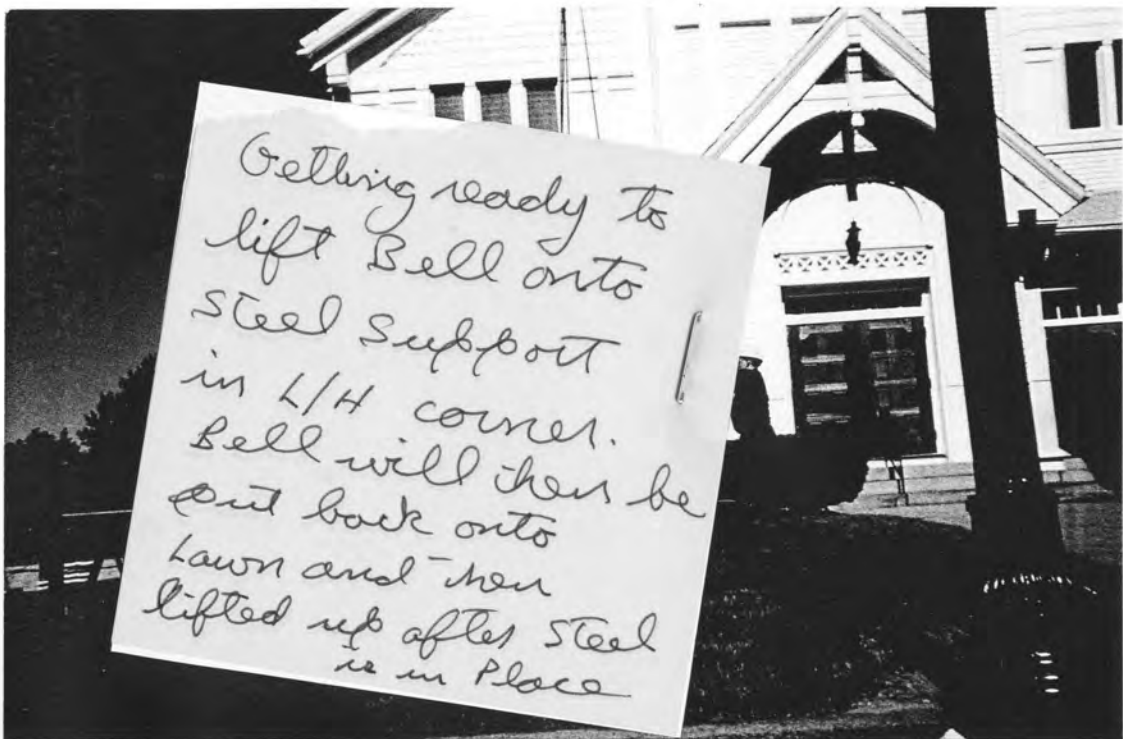 Getting ready to
lift Bell onto
Steel Support
in L/H corner.
Bell will then be
put back onto
Lawn and then
lifted up after Steel
is in Place